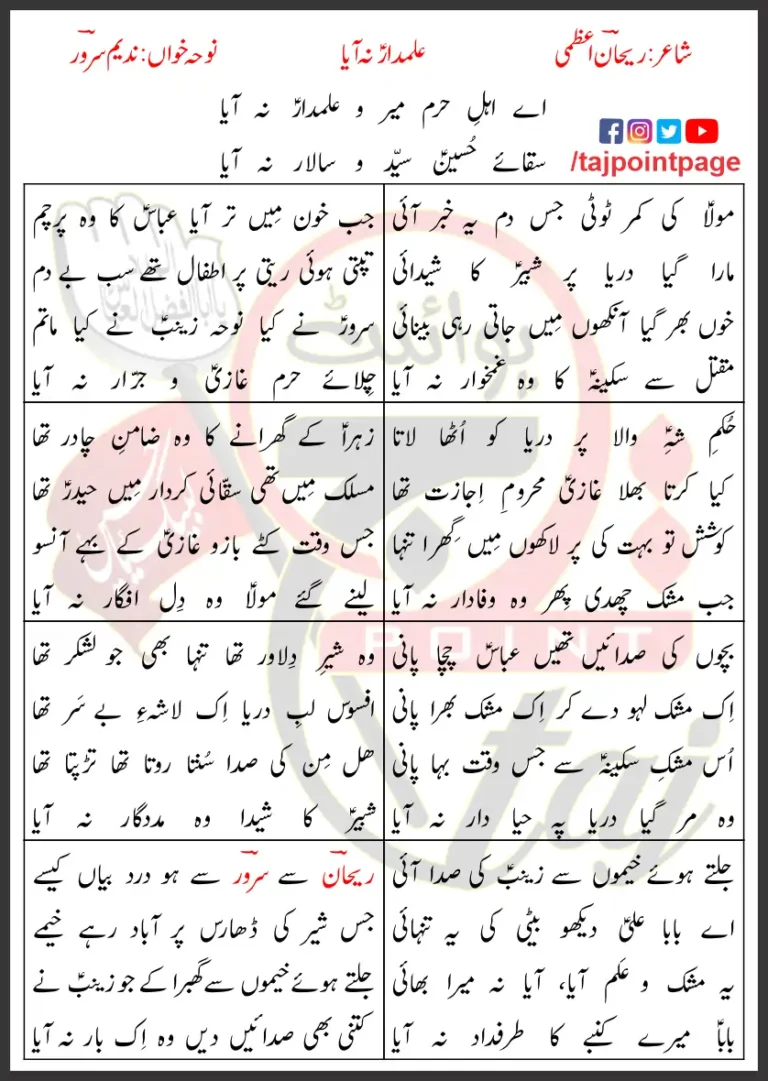 شاعر: ریحانؔ اعظمی
علمدارؑ نہ آیا
نوحہ خواں: ندیم سرورؔ
اے اہلِ حرم میر و علمدارؑ نہ آیا
سقائے حُسینؑ سیّد و سالار نہ آیا
/tajpointpage
مولاؑ کی کمر ٹوٹی جس دم یہ خبر آئی
مارا گیا دریا پر شبیرؑ کا شیدائی
خوں بھر گیا آنکھوں مِیں جاتی رہی بینائی
مقتل سے سکینہؑ کا وہ غمخوار نہ آیا
جب خون مِیں تر آیا عباسؑ کا وہ پرچم
تپتی ہوئی ریتی پر اطفال تھے سب بے دم
سرورؑ نے کیا نوحہ زینبؑ نے کیا ماتم
چِلائے حرم غازیؑ و جرّار نہ آیا
حُکمِ شہِؑ والا پر دریا کو اُٹھا لاتا
کیا کرتا بھلا غازیؑ محرومِ اِجازت تھا
کوشش تو بہت کی پر لاکھوں مِیں گِھرا تنہا
جب مشک چھدی پِھر وہ وفادار نہ آیا
زہراؑ کے گھرانے کا وہ ضامنِ چادر تھا
مسلک مِیں تھی سقّائی کردار مِیں حیدرؑ تھا
جس وقت کٹے بازو غازیؑ کے بہے آنسو
لینے گئے مولاؑ وہ دِل افگار نہ آیا
بچوں کی صدائیں تھیں عباسؑ چچا پانی
اِک مشک لہو دے کر اِک مشک بھرا پانی
اُس مشکِ سکینہؑ سے جس وقت بہا پانی
وہ مر گیا دریا پہ حیا دار نہ آیا
وہ شیرِ دِلاور تھا تنہا بھی جو لشکر تھا
افسوس لبِ دریا اِک لاشہءِ بے سَر تھا
ھل مِن کی صدا سُنتا روتا تھا تڑپتا تھا
شبیرؑ کا شیدا وہ مددگار نہ آیا
جلتے ہوئے خیموں سے زینبؑ کی صدا آئی
اے بابا علیؑ دیکھو بیٹی کی یہ تنہائی
یہ مشک و عَلم آیا، آیا نہ میرا بھائی
باباؑ میرے کنبے کا طرفداد نہ آیا
ریحانؔ سے سرورؔ سے ہو درد بیاں کیسے
جس شیر کی ڈھارس پر آباد رہے خیمے
جلتے ہوئے خیموں سے گھبرا کے جو زینبؑ نے
کتنی بھی صدائیں دیں وہ اِک بار نہ آیا
پوائنٹ
POINT
taj